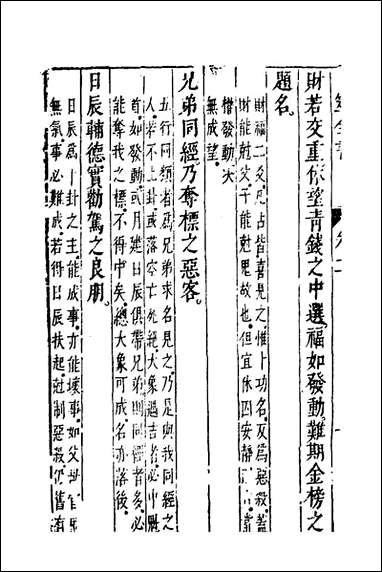 財若交重休望青錢之中選福如發動難期金榜之
題名
財福二爻凡占皆喜見之惟卜功名反爲惡殺蓋
財能尅父子能尅鬼故也但宜休囚安靜
惜發動大
無成望
兄弟同經乃奪標之惡客
五行同類者爲兄弟求名見之乃是與我同經之
人若不上卦或落空亡死絕大象遇吉者必中魁
首如發動或月建日辰俱帶兄弟則同經者多必
能奪我之標不得中矣總大象可成名亦落後
日辰輔德實勸駕之良朋
日辰爲一卦之主能成事亦能壞事如父世官
無氣事必難成若得日辰扶起尅制惡殺仍舊有